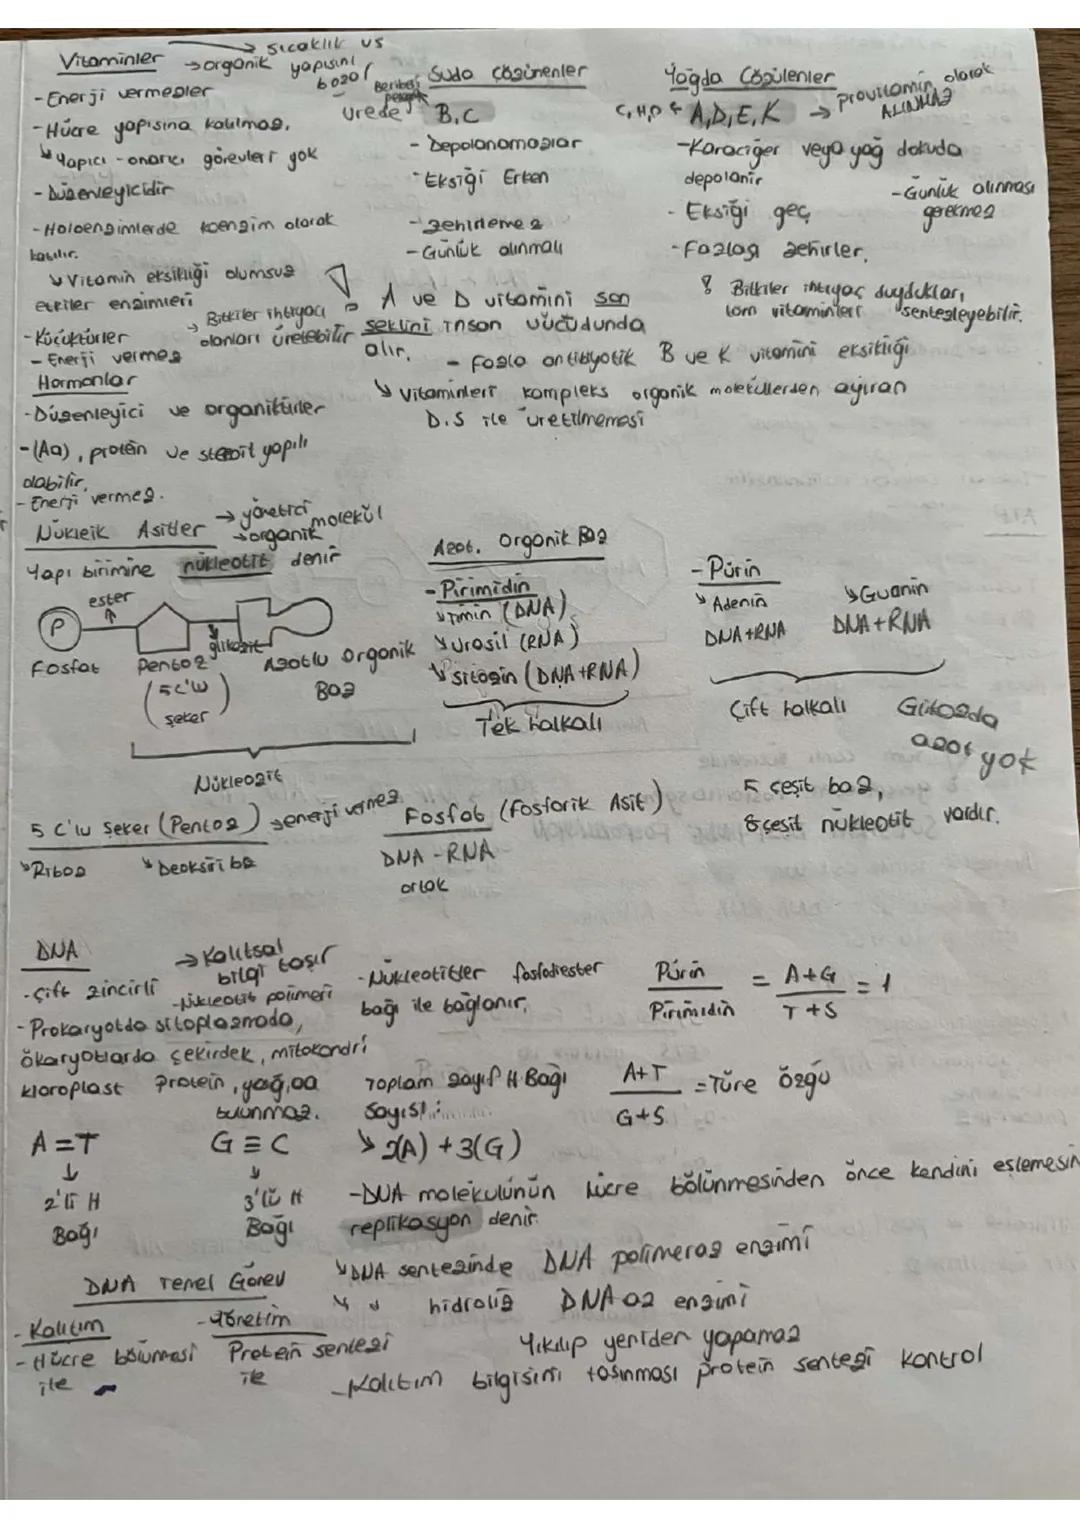 Vitaminler → sıcaklık vs
→ organik yapısını bozar
- Enerji vermezler
- Hücre yapısına katılmaz.
↳ Yapıcı - onarıcı görevleri yok
- Düzenleyicidir
- Holoenzimlerde koenzim olarak
katılır.
↳ Vitamin eksikliği olumsuz
etkiler enzimleri
- Küçüktürler
→ Bitkiler ihtiyacı
olanları üretebilir
- Enerji vermez
Suda çözünenler
Beriberi
B, C
- Depolanamazlar
- Eksiği Erken
- zehirlemez
- Günlük alınmalı
Yağda Çözülenler
C, H, O ← A, D, E, K → provitamin olarak
ALINMAZ
- Karaciğer veya yağ dokuda
depolanır
- Günlük alınması
gerekmez
- Eksiği geç
- Fazlası zehirler.
A ve D vitamini son
şeklini insan vücudunda
alır.
Bitkiler ihtiyaç duydukları
tüm vitaminleri sentezleyebilir.
- Fazla antibiyotik B ve K vitamini eksikliği
↳ Vitaminleri kompleks organik moleküllerden ayıran
D.S ile üretilmemesi
Hormonlar
- Düzenleyici ve organiktirler
- (Aa), protein ve steroit yapılı
olabilir.
- Enerji vermez.
Nükleik Asitler → yönetici
→ organik molekül
Yapı birimine nükleotit denir
ester
P
glikozit
Fosfat
Pentoz
(5C'lu
şeker)
Azotlu Organik
Baz
Nükleozit
Azot. Organik Baz
- Pirimidin
↳ Timin (DNA)
↳ Urasil (RNA)
↳ Sitozin (DNA+RNA)
Tek halkalı
- Pürin
↳ Adenin
DNA+RNA
↳ Guanin
DNA+RNA
Çift halkalı
Glikozda
azot yok
5 C'lu Şeker (Pentoz) → enerji vermez
↳ Riboz
↳ Deoksiriboz
Fosfat (Fosforik Asit)
DNA - RNA
ortak
5 çeşit baz,
8 çeşit nükleotit vardır.
DNA
→ Kalıtsal
bilgi taşır
- Çift zincirli
- Nükleotit polimeri
- Prokaryotda sitoplazmada,
ökaryotlarda çekirdek, mitokondri
kloroplast
Protein, yağ,
bulunmaz.
A = T
↓
2'li H
Bağı
G ≡ C
↓
3'lü H
Bağı
- Nükleotitler fosfodiester
bağı ile bağlanır.
Pürin / Pirimidin = A+G / T+S = 1
A+T / G+S = Türe özgü
Toplam zayıf H Bağı
sayısı:
↳ 2(A) + 3(G)
- DNA molekülünün hücre bölünmesinden önce kendini eşlemesin
replikasyon denir.
↳ DNA sentezinde DNA polimeraz enzimi
↳ " hidroliz DNAaz enzimi
Yıkılıp yeniden yapamaz
- Kalıtım bilgisini taşınması protein sentezi kontrol
DNA Temel Görev
- Kalıtım
- Hücre bölünmesi
ile
- Yönetim
Protein sentezi
ile